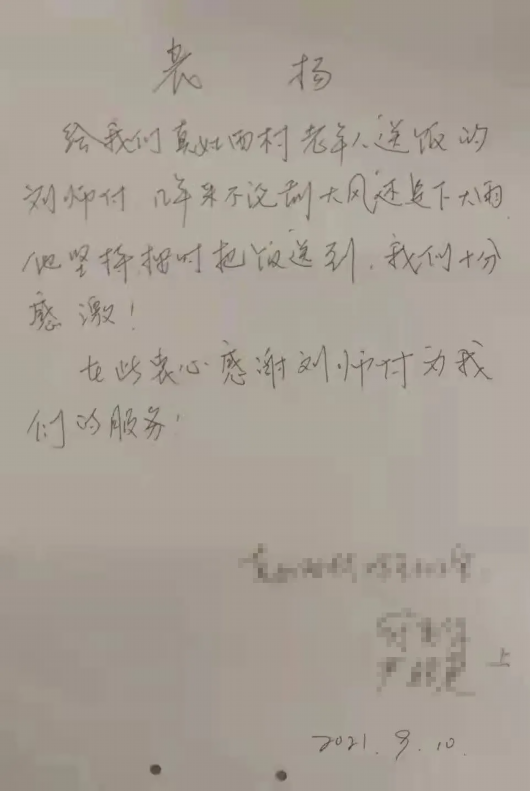 表 扬
给我们真如西村老年人送饭的
刘师付 几年来不论刮大风还是下大雨
他坚持按时把饭送到,我们十分
感激!
在此衷心感谢刘师付为我
们的服务.
上
2021.9.10.